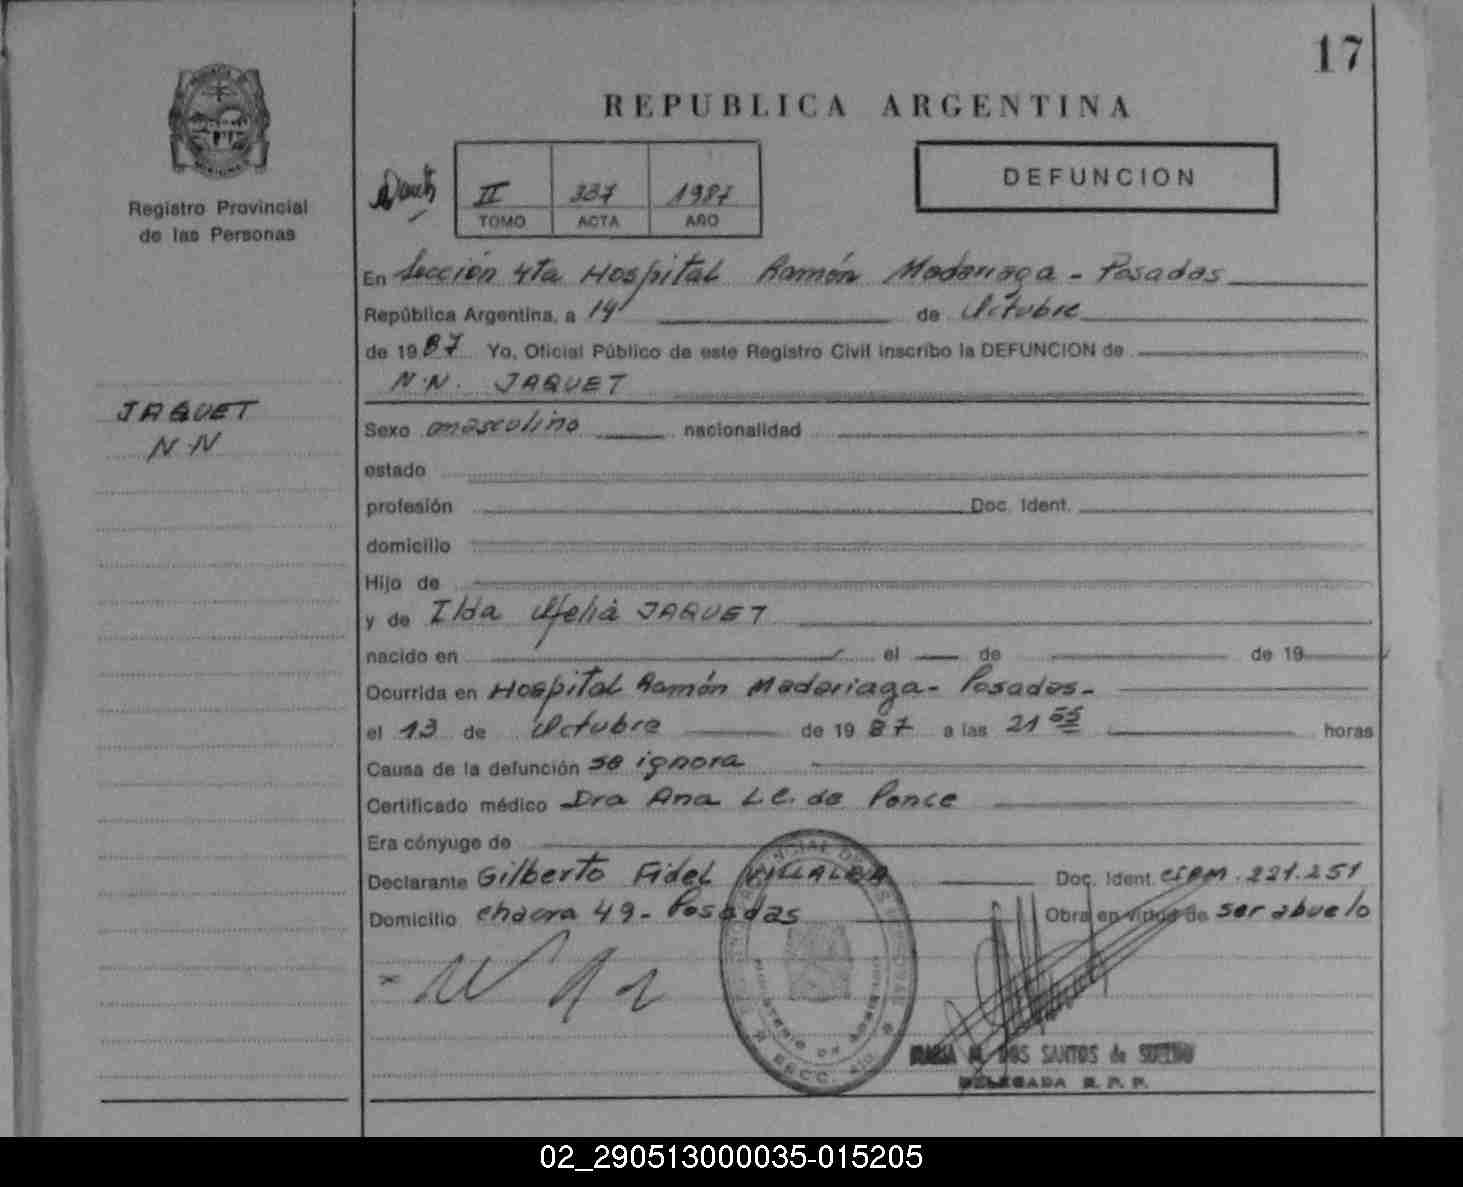 17
REPUBLICA ARGENTINA
Registro Provincial
de las Personas
II 337 1987
TOMO ACTA AÑO
DEFUNCION
En Sección 4ta Hospital Ramón Madariaga - Posadas
República Argentina, a 14 de Octubre
de 1987 Yo, Oficial Público de este Registro Civil inscribo la DEFUNCION de
N.N. JAQUET
JAQUET
N N
Sexo masculino nacionalidad
estado
profesión Doc. Ident.
domicilio
Hijo de
y de Ilda Ofelia JAQUET
nacido en el de de 19
Ocurrida en Hospital Ramón Madariaga - Posadas -
el 13 de Octubre de 1987 a las 21 55 horas
Causa de la defunción se ignora
Certificado médico Dra Ana L.C. de Ponce
Era cónyuge de
Declarante Gilberto Fidel VILLALBA Doc. Ident. 221.251
Domicilio chacra 49 - Posadas Obra en virtud de ser abuelo
MARIA M. DOS SANTOS de
DELEGADA R. P. P.
02_290513000035-015205